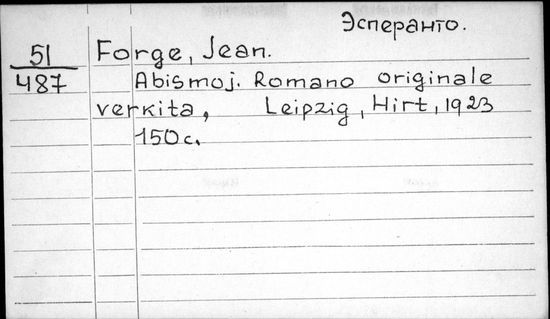 Эсперанто.
51
487
Forge, Jean.
Abismoj. Romano originale
verkita, Leipzig, Hirt, 1923
150 с.